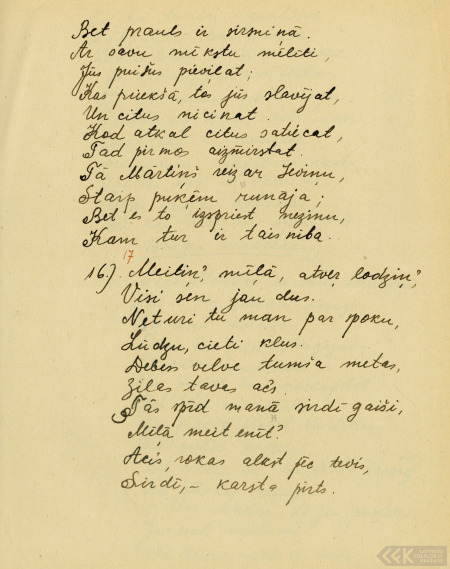 Bet prauls ir sirsniņā.
Ar savu mīkstu mēlīti,
Jūs puišus pieviļat;
Kas priekšā, tos jūs slavījat,
Un citus nicinat.
Kad atkal citus satiecat,
Tad pirmos aizmirstat.
Tā Mārtiņš reiz ar Ieviņu,
Starp puķēm runāja;
Bet es to izspriest nezinu,
Kam tur ir taisnība.
17
16.) Meitiņ', mīļā, atver lodziņ',
Visi sen jau dus.
Neturi tu man par spoku,
Lūdzu, cieti klus.
Debess velve tumša metas,
Zilas tavas acs.
Tās spīd manā sirdī gaiši,
Mīļā meitenīt'.
Acis, rokas alkst pēc tevis,
Sirdī, - karsta pirts.